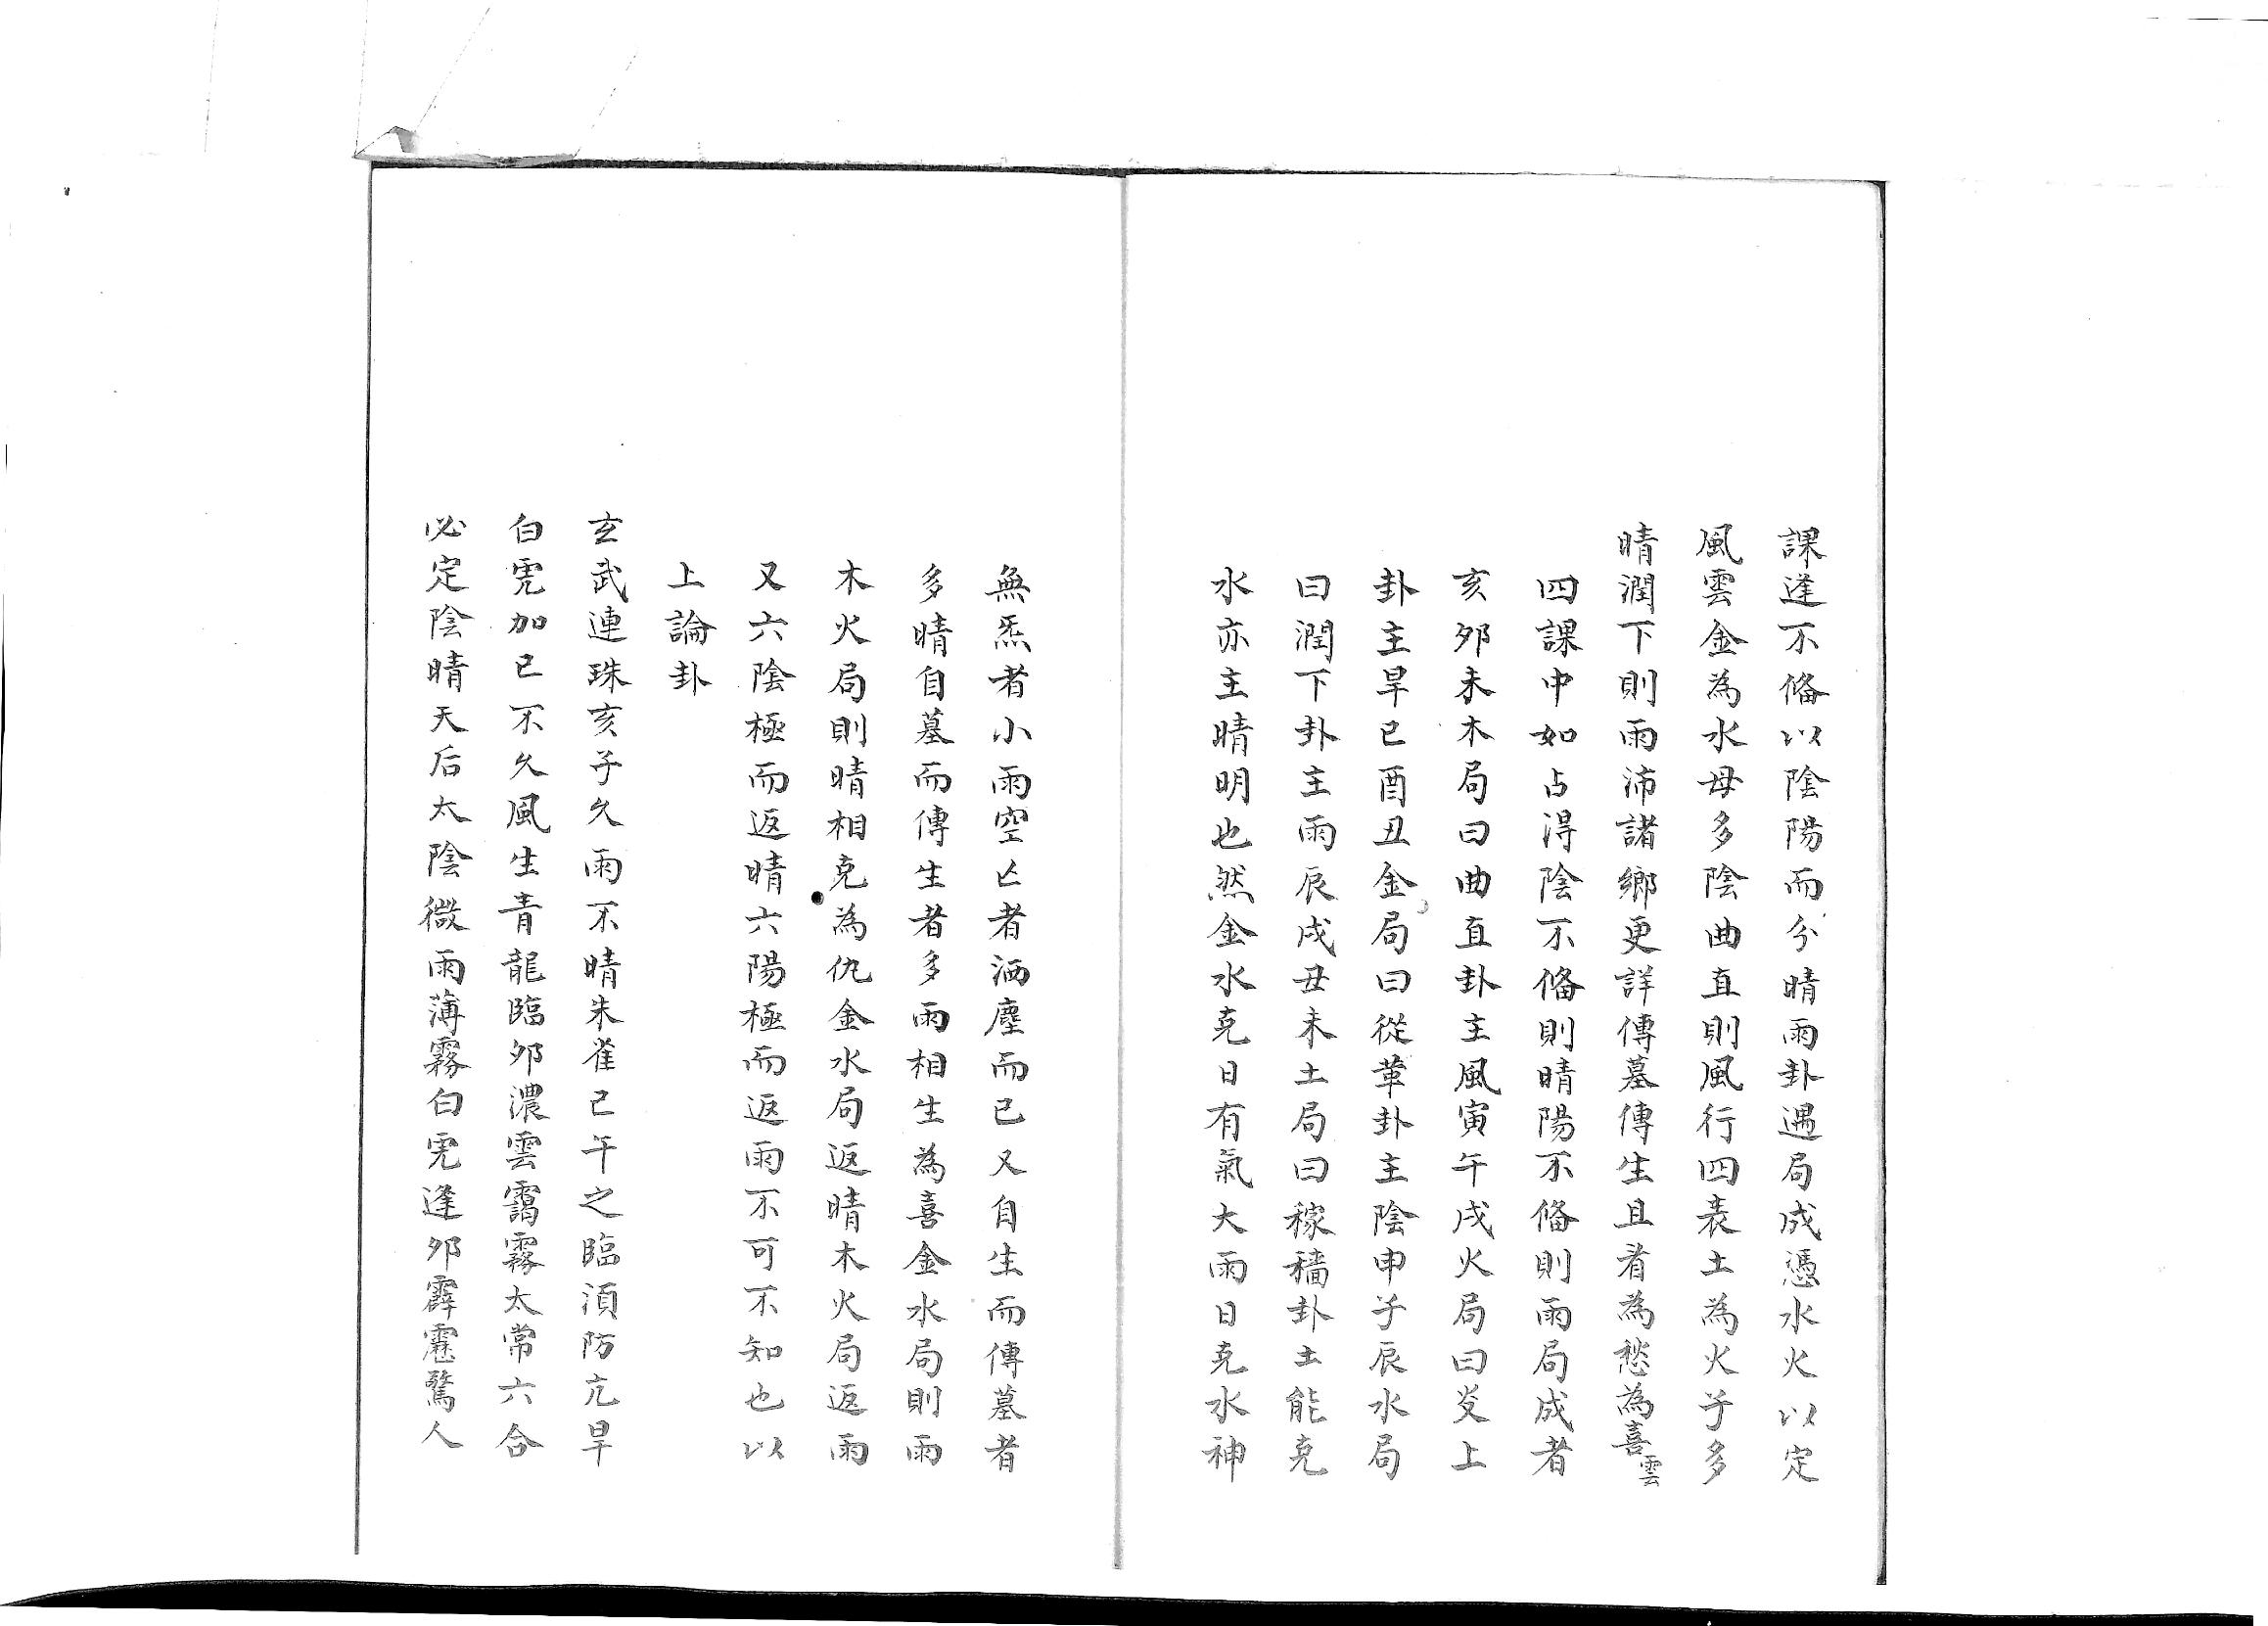 課逢不俻以陰陽而分晴雨卦遇局成憑水火以定
風雲金為水母多陰曲直則風行四表土為火子多
晴潤下則雨沛諸鄉更詳傳墓傳生且看為愁為喜雲
四課中如占得陰不俻則晴陽不俻則雨局成者
亥夘未木局曰曲直卦主風寅午戌火局曰炎上
卦主旱巳酉丑金局曰從革卦主陰申子辰水局
曰潤下卦主雨辰戌丑未土局曰稼穡卦土能克
水亦主晴明也然金水克日有氣大雨日克水神
無炁者小雨空亡者洒塵而已又自生而傳墓者
多晴自墓而傳生者多雨相生為喜金水局則雨
木火局則晴相克為仇金水局返晴木火局返雨
又六陰極而返晴六陽極而返雨不可不知也以
上論卦
玄武連珠亥子久雨不晴朱雀巳午之臨須防亢旱
白虎加巳不久風生青龍臨夘濃雲靄霧太常六合
必定陰晴天后太陰微雨薄霧白虎逢夘霹靂驚人